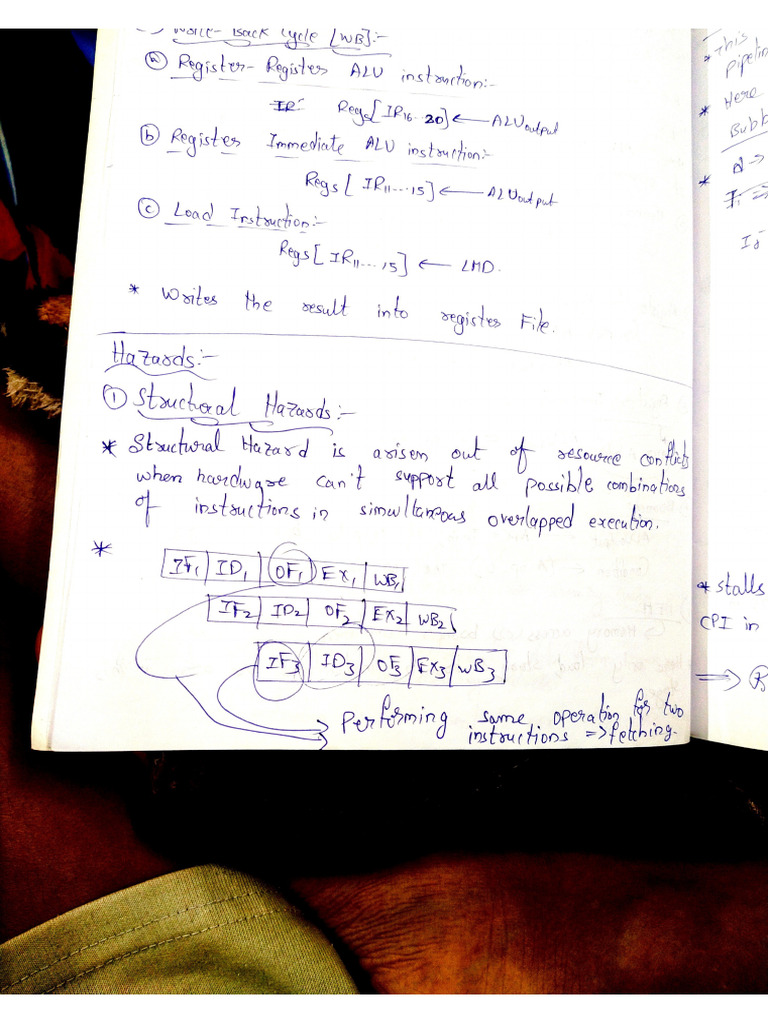 => Write-Back Cycle [WB]:-
(a) Register-Register ALU instruction:-
IR: Regs[IR16...20] ← ALUoutput
(b) Register Immediate ALU instruction:-
Regs[IR11....15] ← ALUoutput
(c) Load Instruction:-
Regs[IR11....15] ← LMD.
* Writes the result into register File.
Hazards:-
① Structural Hazards:-
* Structural Hazard is arisen out of resource conflicts
when hardware can't support all possible combinations
of instructions in simultaneous overlapped execution.
*
IF1 | ID1 | OF1 | EX1 | WB1
IF2 | ID2 | OF2 | EX2 | WB2
IF3 | ID3 | OF3 | EX3 | WB3
Performing same operation for two
instructions => fetching.
* This
Pipelin
* Here
Bubb
*
I1 =>
* stalls
CPI in
=>